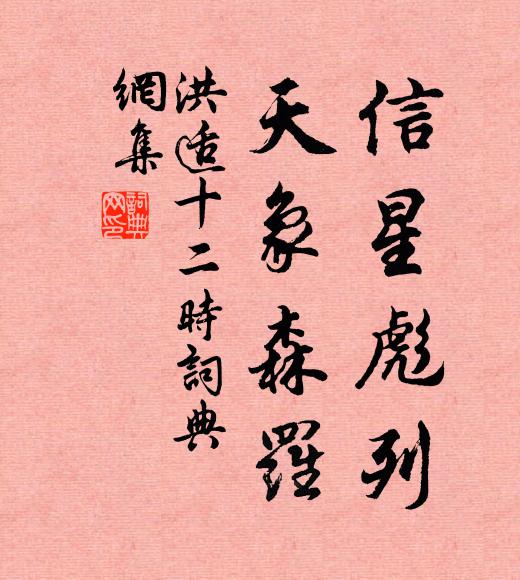 信星彪列
天象森羅
洪适十二時詞典
網集
詞典
网印